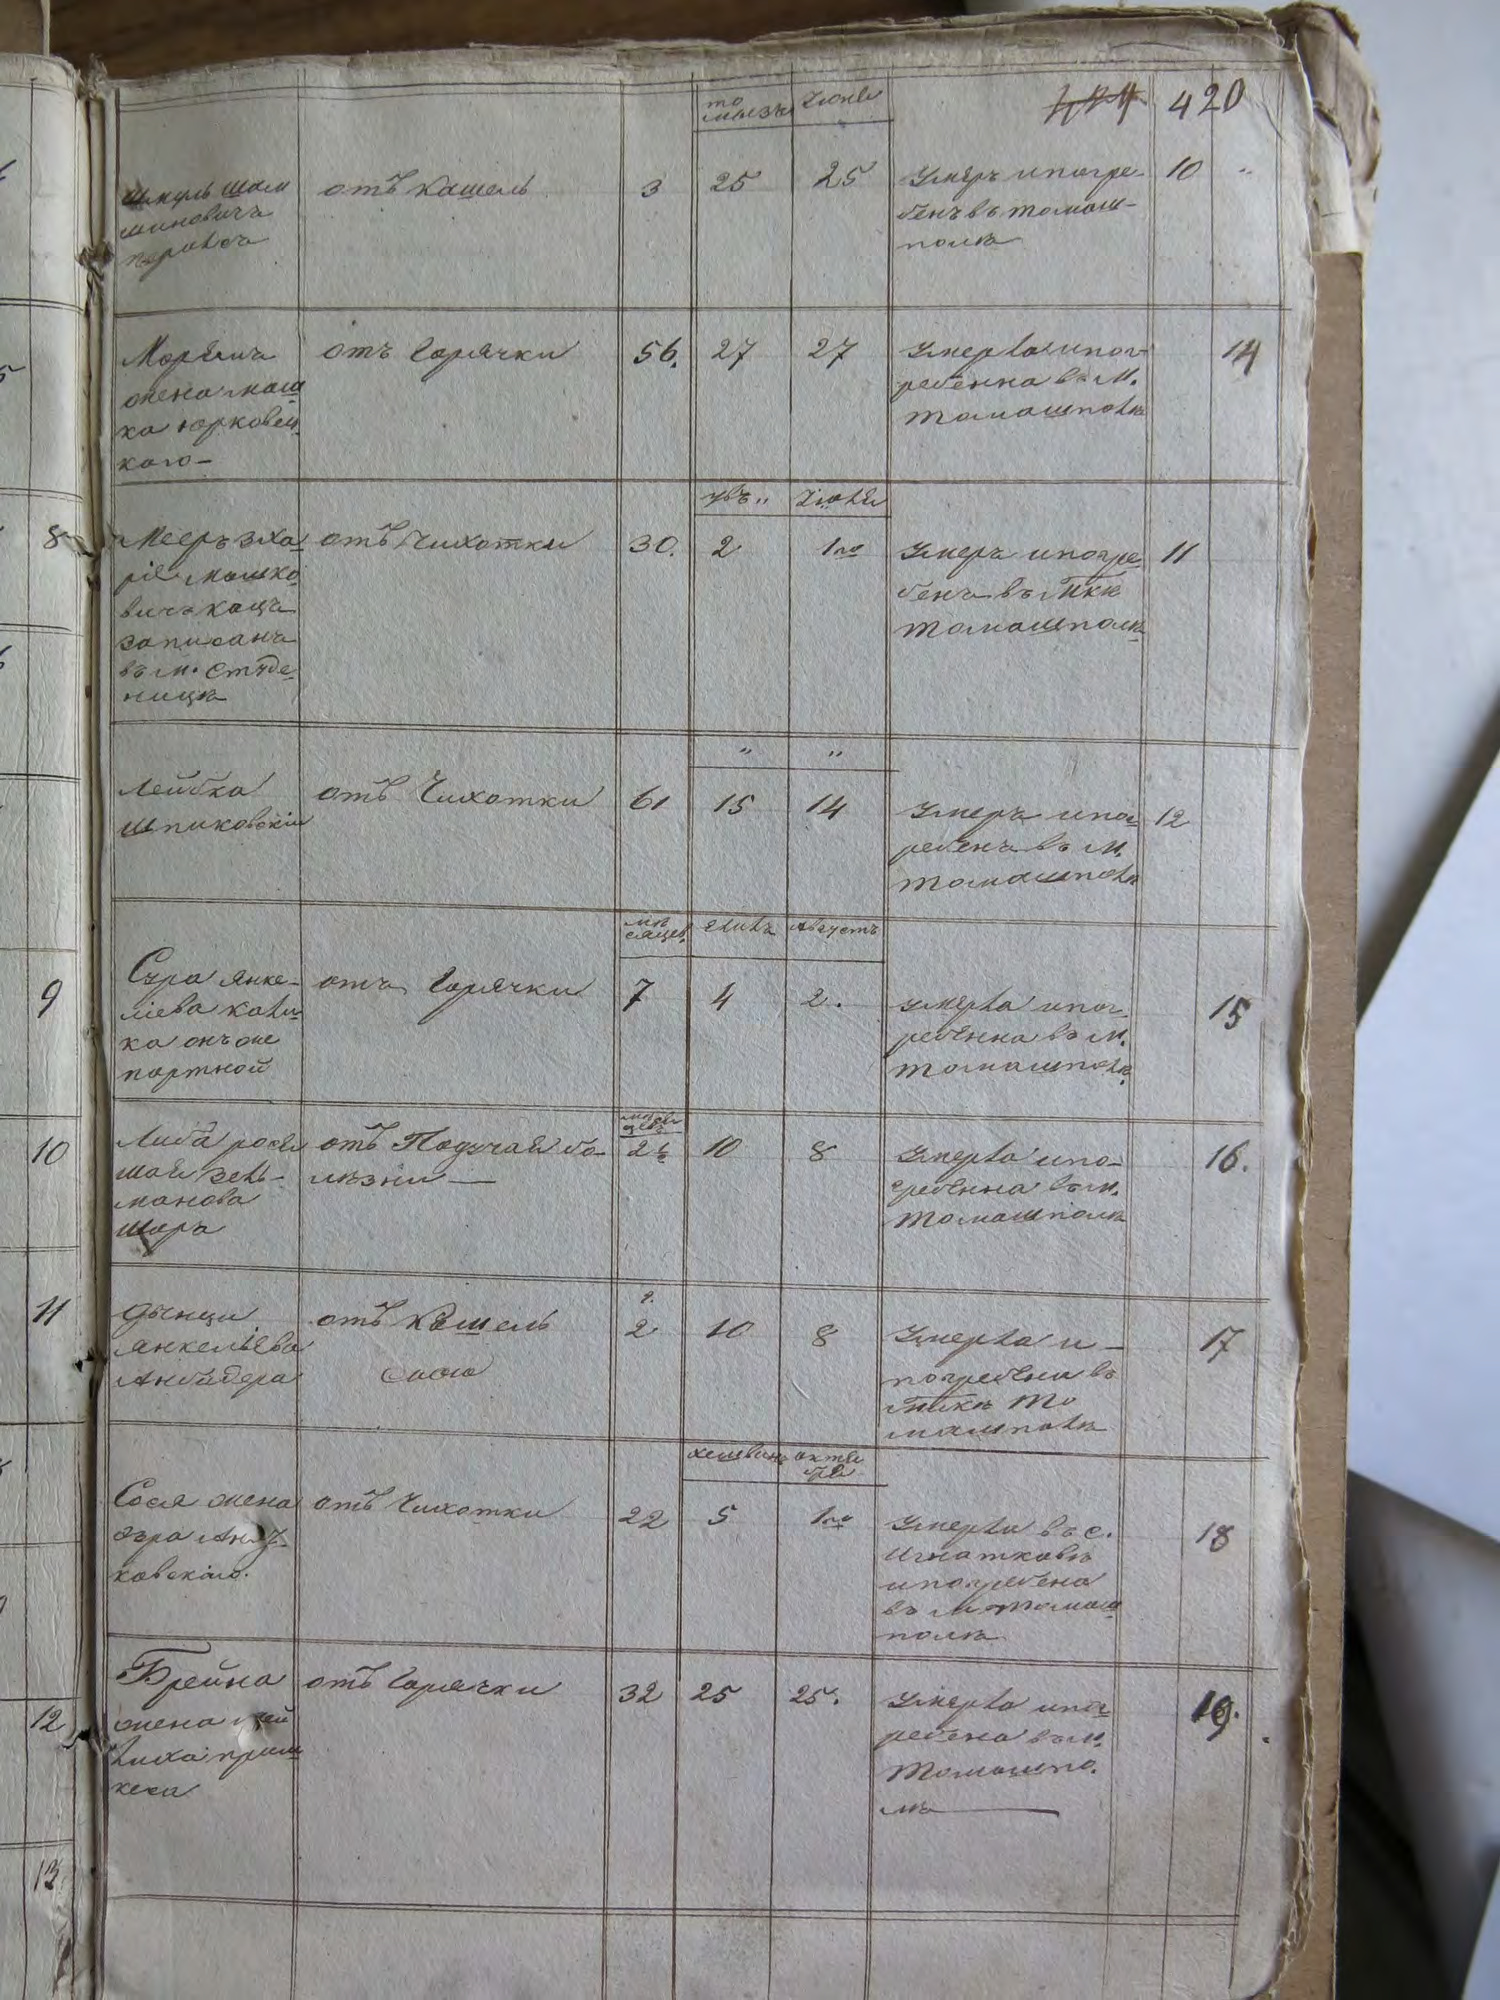 то
мызъ
Июня
420
Шмуль Шам
шиновичъ
отъ кашель
3
25
25
Умеръ и погре-
бенъ въ томаш-
полѣ
10
"
Мориямъ
жена Маш
ка Юрковец
каго -
отъ Горячки
56.
27
27
Умерла и пог-
ребенна въ М.
томашполѣ
14
увъ "
Июля
8
Мееръ Зха
рiя Мошко
вичъ кацъ
записанъ
въ м. Студе
ницѣ
отъ Чихотки
30.
2
1го
Умеръ и погре
бенъ въ Мкѣ
томашполѣ
11
"
"
Лейбка
Шпиковскiй
отъ Чихотки
61
15
14
Умеръ и пог
ребенъ въ М.
томашполѣ
12
мѣ
сяцев.
Элилъ
Августъ
9
Сура Янке-
лiева
ка онъ же
портной
отъ Горячки
7
4
2.
Умерла и пог
ребенна въ М.
томашполѣ
15
10
Либа
Зель-
манова
Шоръ
отъ Подучая бо-
лѣзни —
2
10
8
Умерла и по-
гребенна въ М.
томашполѣ
16.
11
Янкелiева
отъ Кашель
2
10
8
Умерла и -
погребена въ
Мкѣ То
машполѣ
17
хешванъ
октя
бря
Сося жена
ковскаго.
отъ Чихотки
22
5
1го
Умерла въ с.
Игнатковѣ
и погребена
въ м томаш
полѣ
18
Брейна
жена
отъ Горячки
32
25
25.
Умерла и пог
ребена въ М.
Томашпо.
лѣ —
19.
12
13